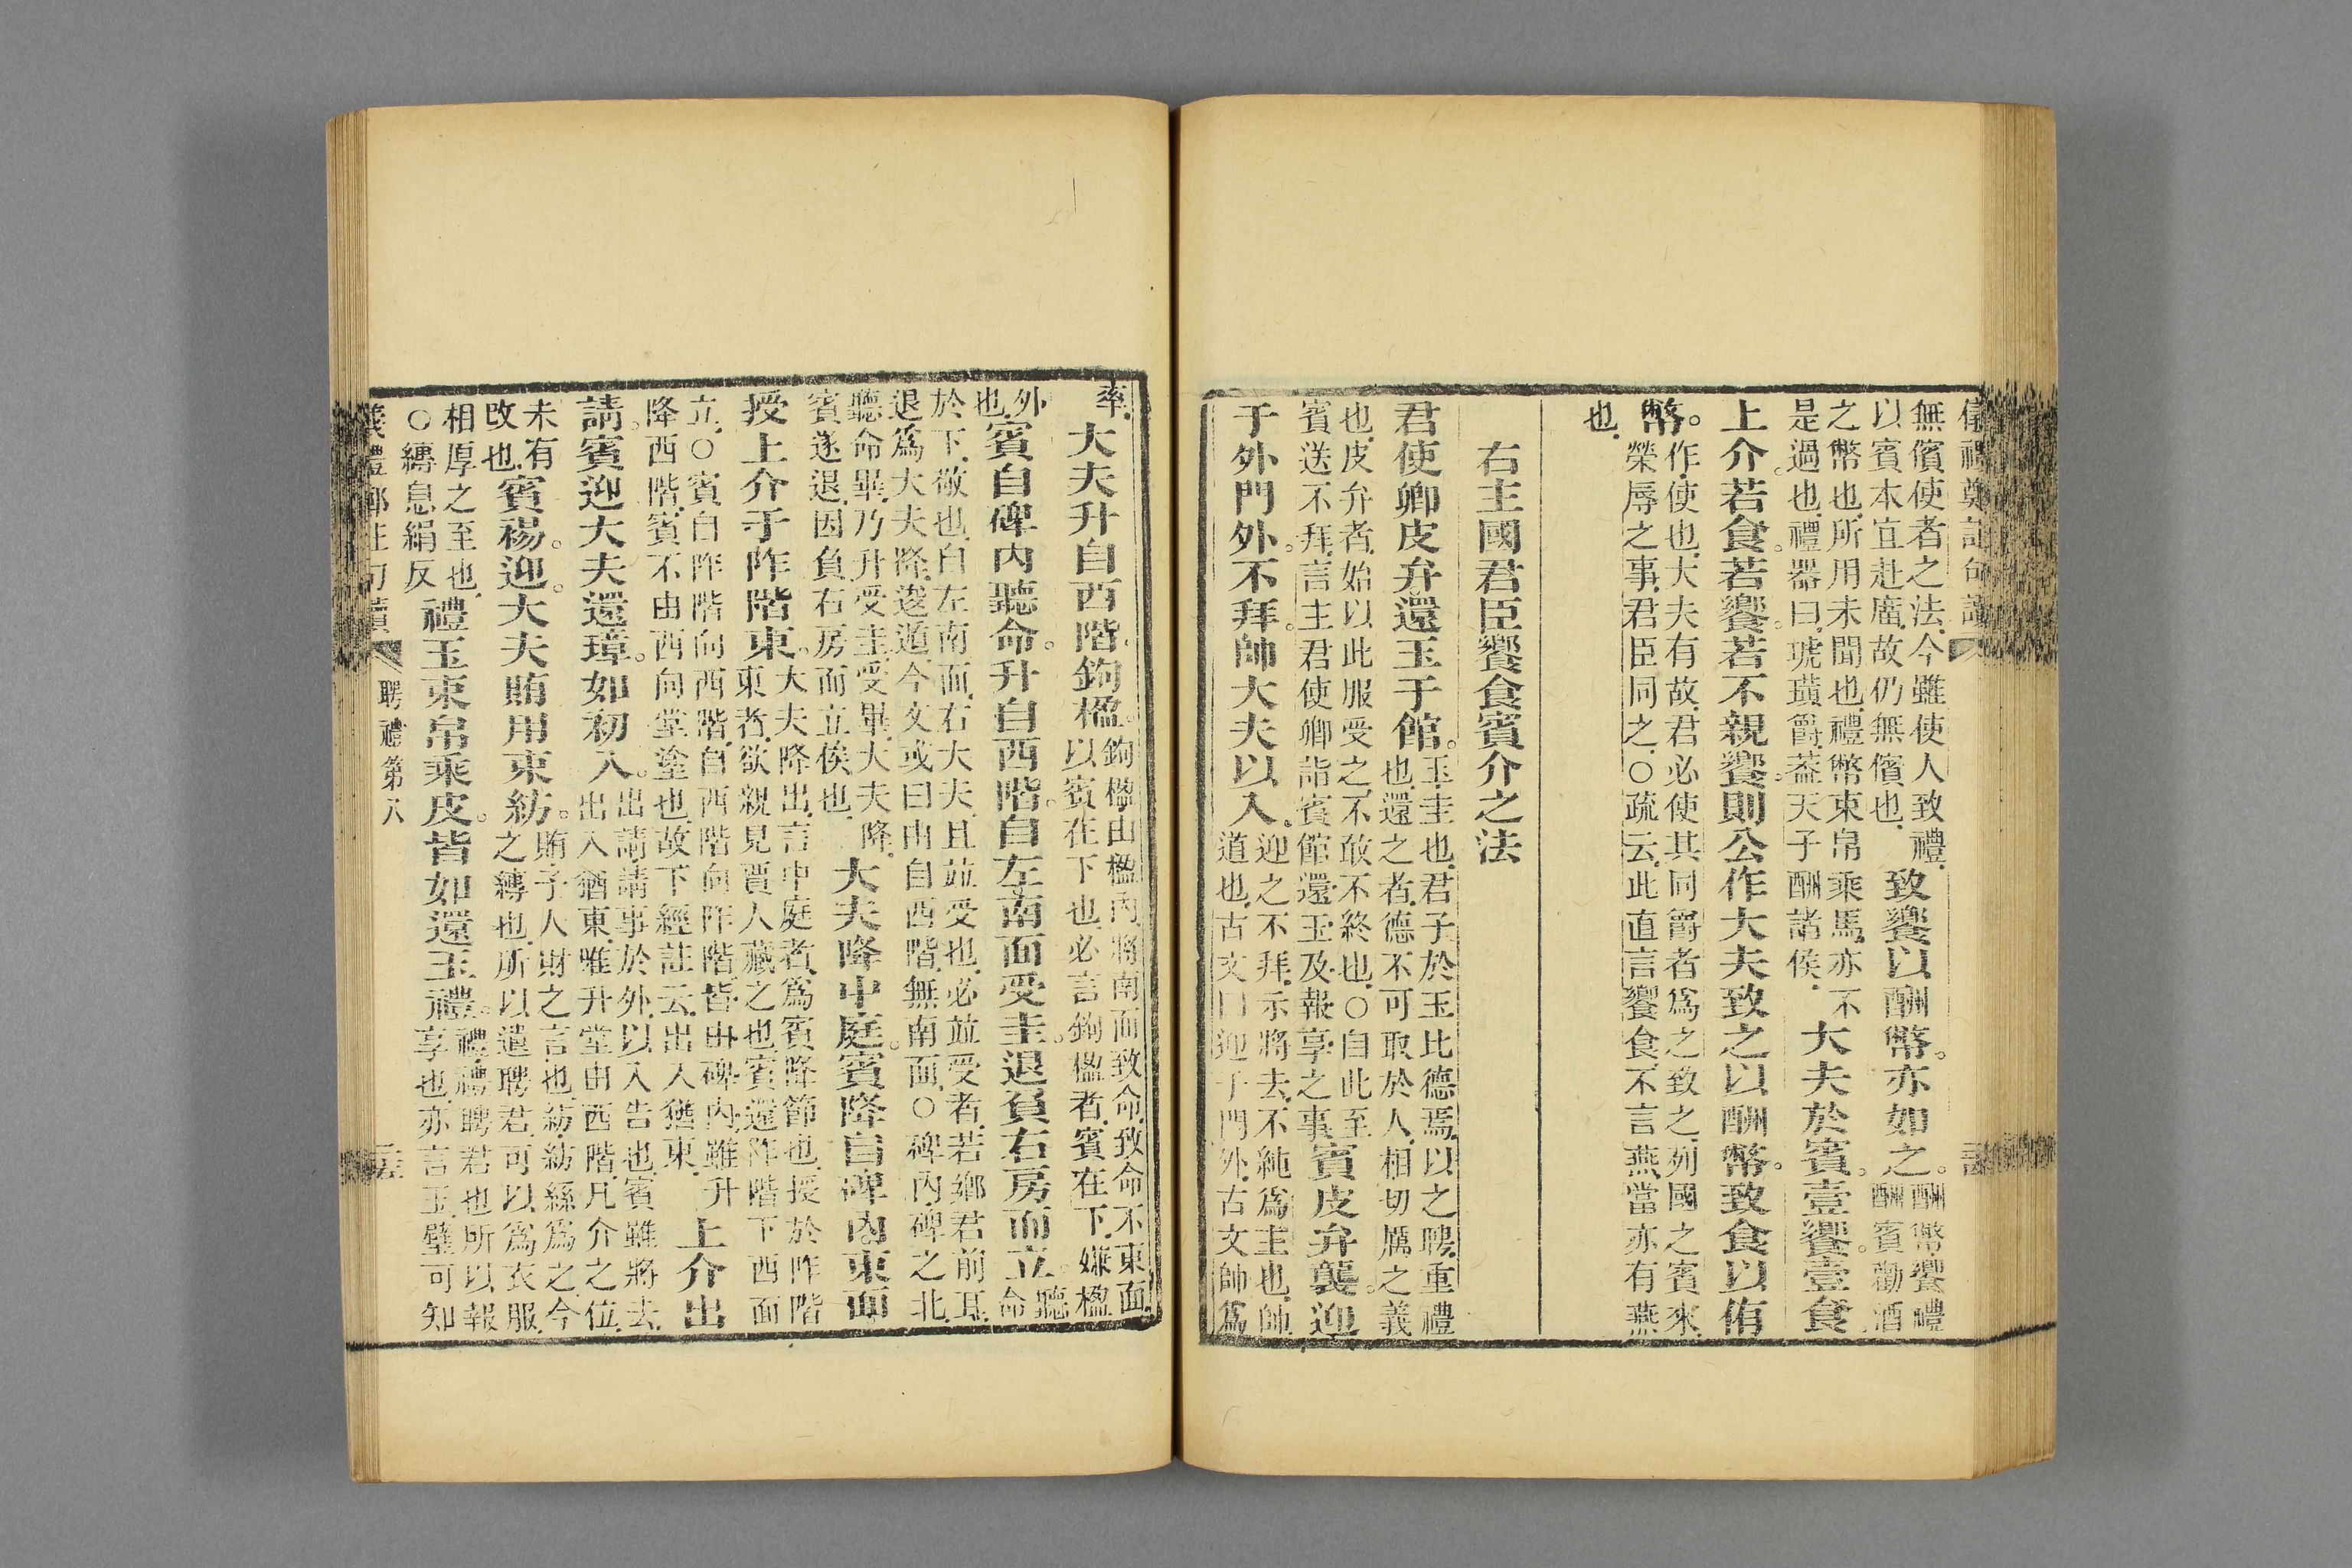 儀禮鄭註句讀
無儐使者之法今雖使人致禮
以賓本宜赴廬故仍無儐也 致饗以酬幣亦如之 酬幣饗禮酬賓勸酒
之幣也所用未聞也禮幣束帛乘馬亦不
是過也禮器曰琥璜爵葢天子酬諸侯 大夫於賓壹饗壹食
上介若食若饗若不親饗則公作大夫致之以酬幣致食以侑
幣 作使也大夫有故君必使其同爵者爲之致之列國之賓來
榮辱之事君臣同之○疏云此直言饗食不言燕當亦有燕
也
右主國君臣饗食賓介之法
君使卿皮弁還玉于館 玉圭也君子於玉比德焉以之聘重禮
也還之者德不可取於人相切厲之義
也皮弁者始以此服受之不敢不終也○自此至
賓送不拜言主君使卿詣賓館還玉及報享之事 賓皮弁襲迎
于外門外不拜帥大夫以入 迎之不拜示將去不純爲主也帥
道也古文曰迎于門外古文帥爲
率 大夫升自西階鉤楹 鉤楹由楹內將南面致命致命不東面
以賓在下也必言鉤楹者賓在下嫌楹
外也 賓自碑內聽命升自西階自左南面受圭退負右房而立 聽命
於下敬也自左南面右大夫且竝受也必竝受者若鄉君前耳
退爲大夫降逡遁今文或曰由自西階無南面○碑內碑之北
聽命畢乃升受圭受畢大夫降
賓遂退因負右房而立俟也 大夫降中庭賓降自碑內東面
授上介于阼階東 大夫降出言中庭者爲賓降節也授於阼階
東者欲親見賈人藏之也賓還阼階下西面
立○賓自阼階向西階自西階向阼階皆由碑內雖升
降西階賓不由西向堂塗也故下經註云出入猶東 上介出
請賓迎大夫還璋如初入 出請請事於外以入告也賓雖將去
出入猶東唯升堂由西階凡介之位
未有
改也 賓裼迎大夫賄用束紡 賄予人財之言也紡紡絲爲之今
之縳也所以遺聘君可以爲衣服
相厚之至也
○縳息絹反 禮玉束帛乘皮皆如還玉禮 禮禮聘君也所以報
享也亦言玉璧可知
聘禮第八